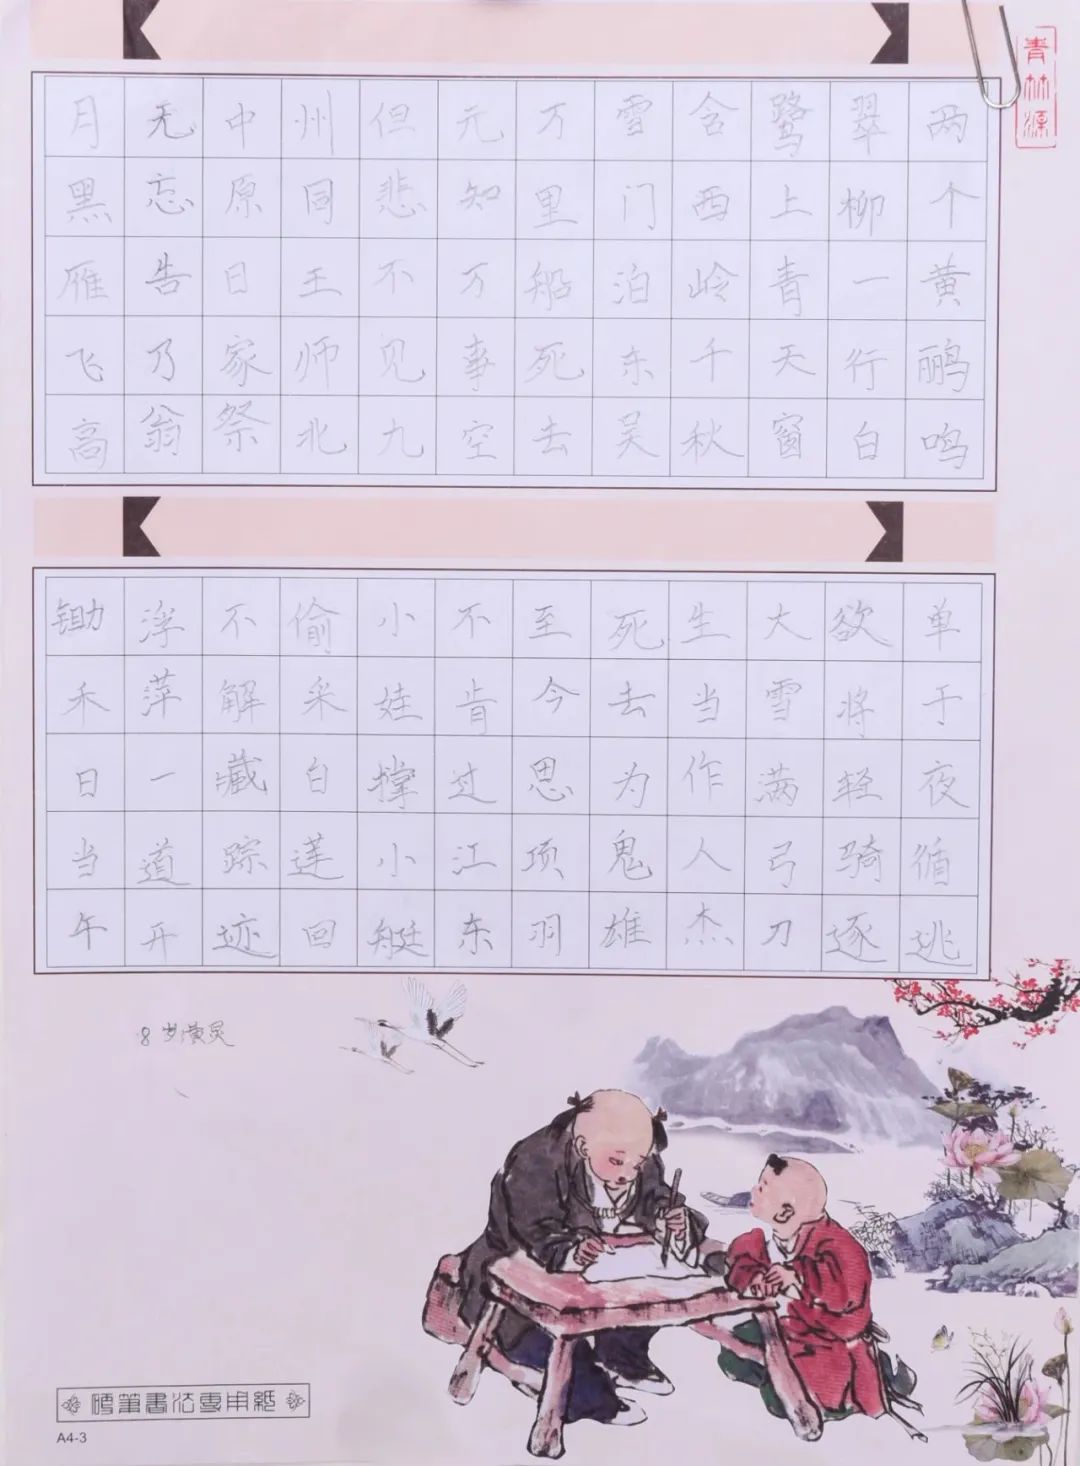 青林源
两个黄鹂鸣
翠柳一行白
鹭上青天窗
含西岭千秋
雪门泊东吴
万里船死去
元知万事空
但悲不见九
州同王师北
中原日家祭
无忘告乃翁
月黑雁飞高
单于夜循逃
欲将轻骑逐
大雪满弓刀
生当作人杰
死去为鬼雄
至今思项羽
不肯过江东
小娃撑小艇
偷采白莲回
不解藏踪迹
浮萍一道开
锄禾日当午
8岁黄
硬筆書法專用紙
A4-3